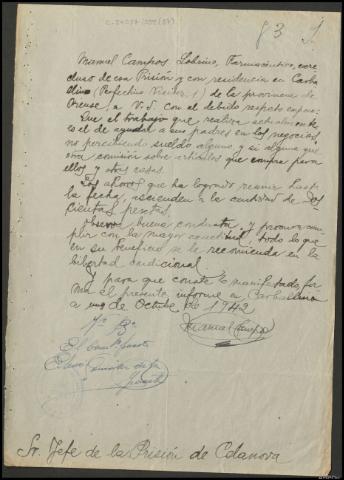 83 1
Manuel Campos Sobrino, Farmacéutico, ex re
cluso de esa Prisión y con residencia en Carba
llino (Perfectino Viéitez 1) de la provincia de
Orense, a V.S. con el debido respeto expone:
Que el trabajo que realiza actualmente
es el de ayudar a sus padres en los negocios
no percibiendo sueldo alguno, y si alguna que
otra comisión sobre artículos que compra para
ellos y otras casas.
Los ahorros que ha logrado reunir hasta
la fecha, ascienden a la cantidad de Dos
cientas pesetas.
Observa buena conducta y procura cum
plir con la mayor todo lo que
en su beneficio se le recomienda en la
libertad condicional.
Y para que conste lo manifestado, for
mula el presente informe a Carballino
a uno de Octubre de 1942
Manuel Campos
Vº Bº
El
Sr. Jefe de la Prisión de Celanova